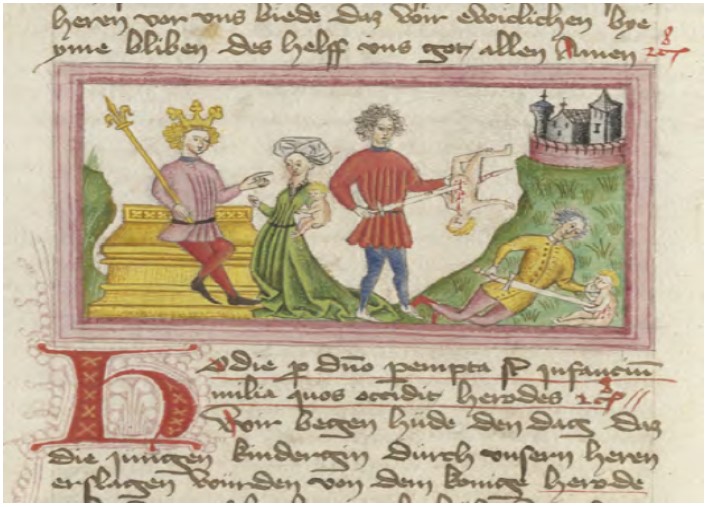 heren vor vns biede daz wir ewiclichen bye
yme bliben des helff vns got allen Amen
Hodie p dno pempta st infanciu
milia quos occidit herodes
Wir begen hude den dag daz
die jungen kindergin durch vnsern heren
erslagen wurden von dem konige herode